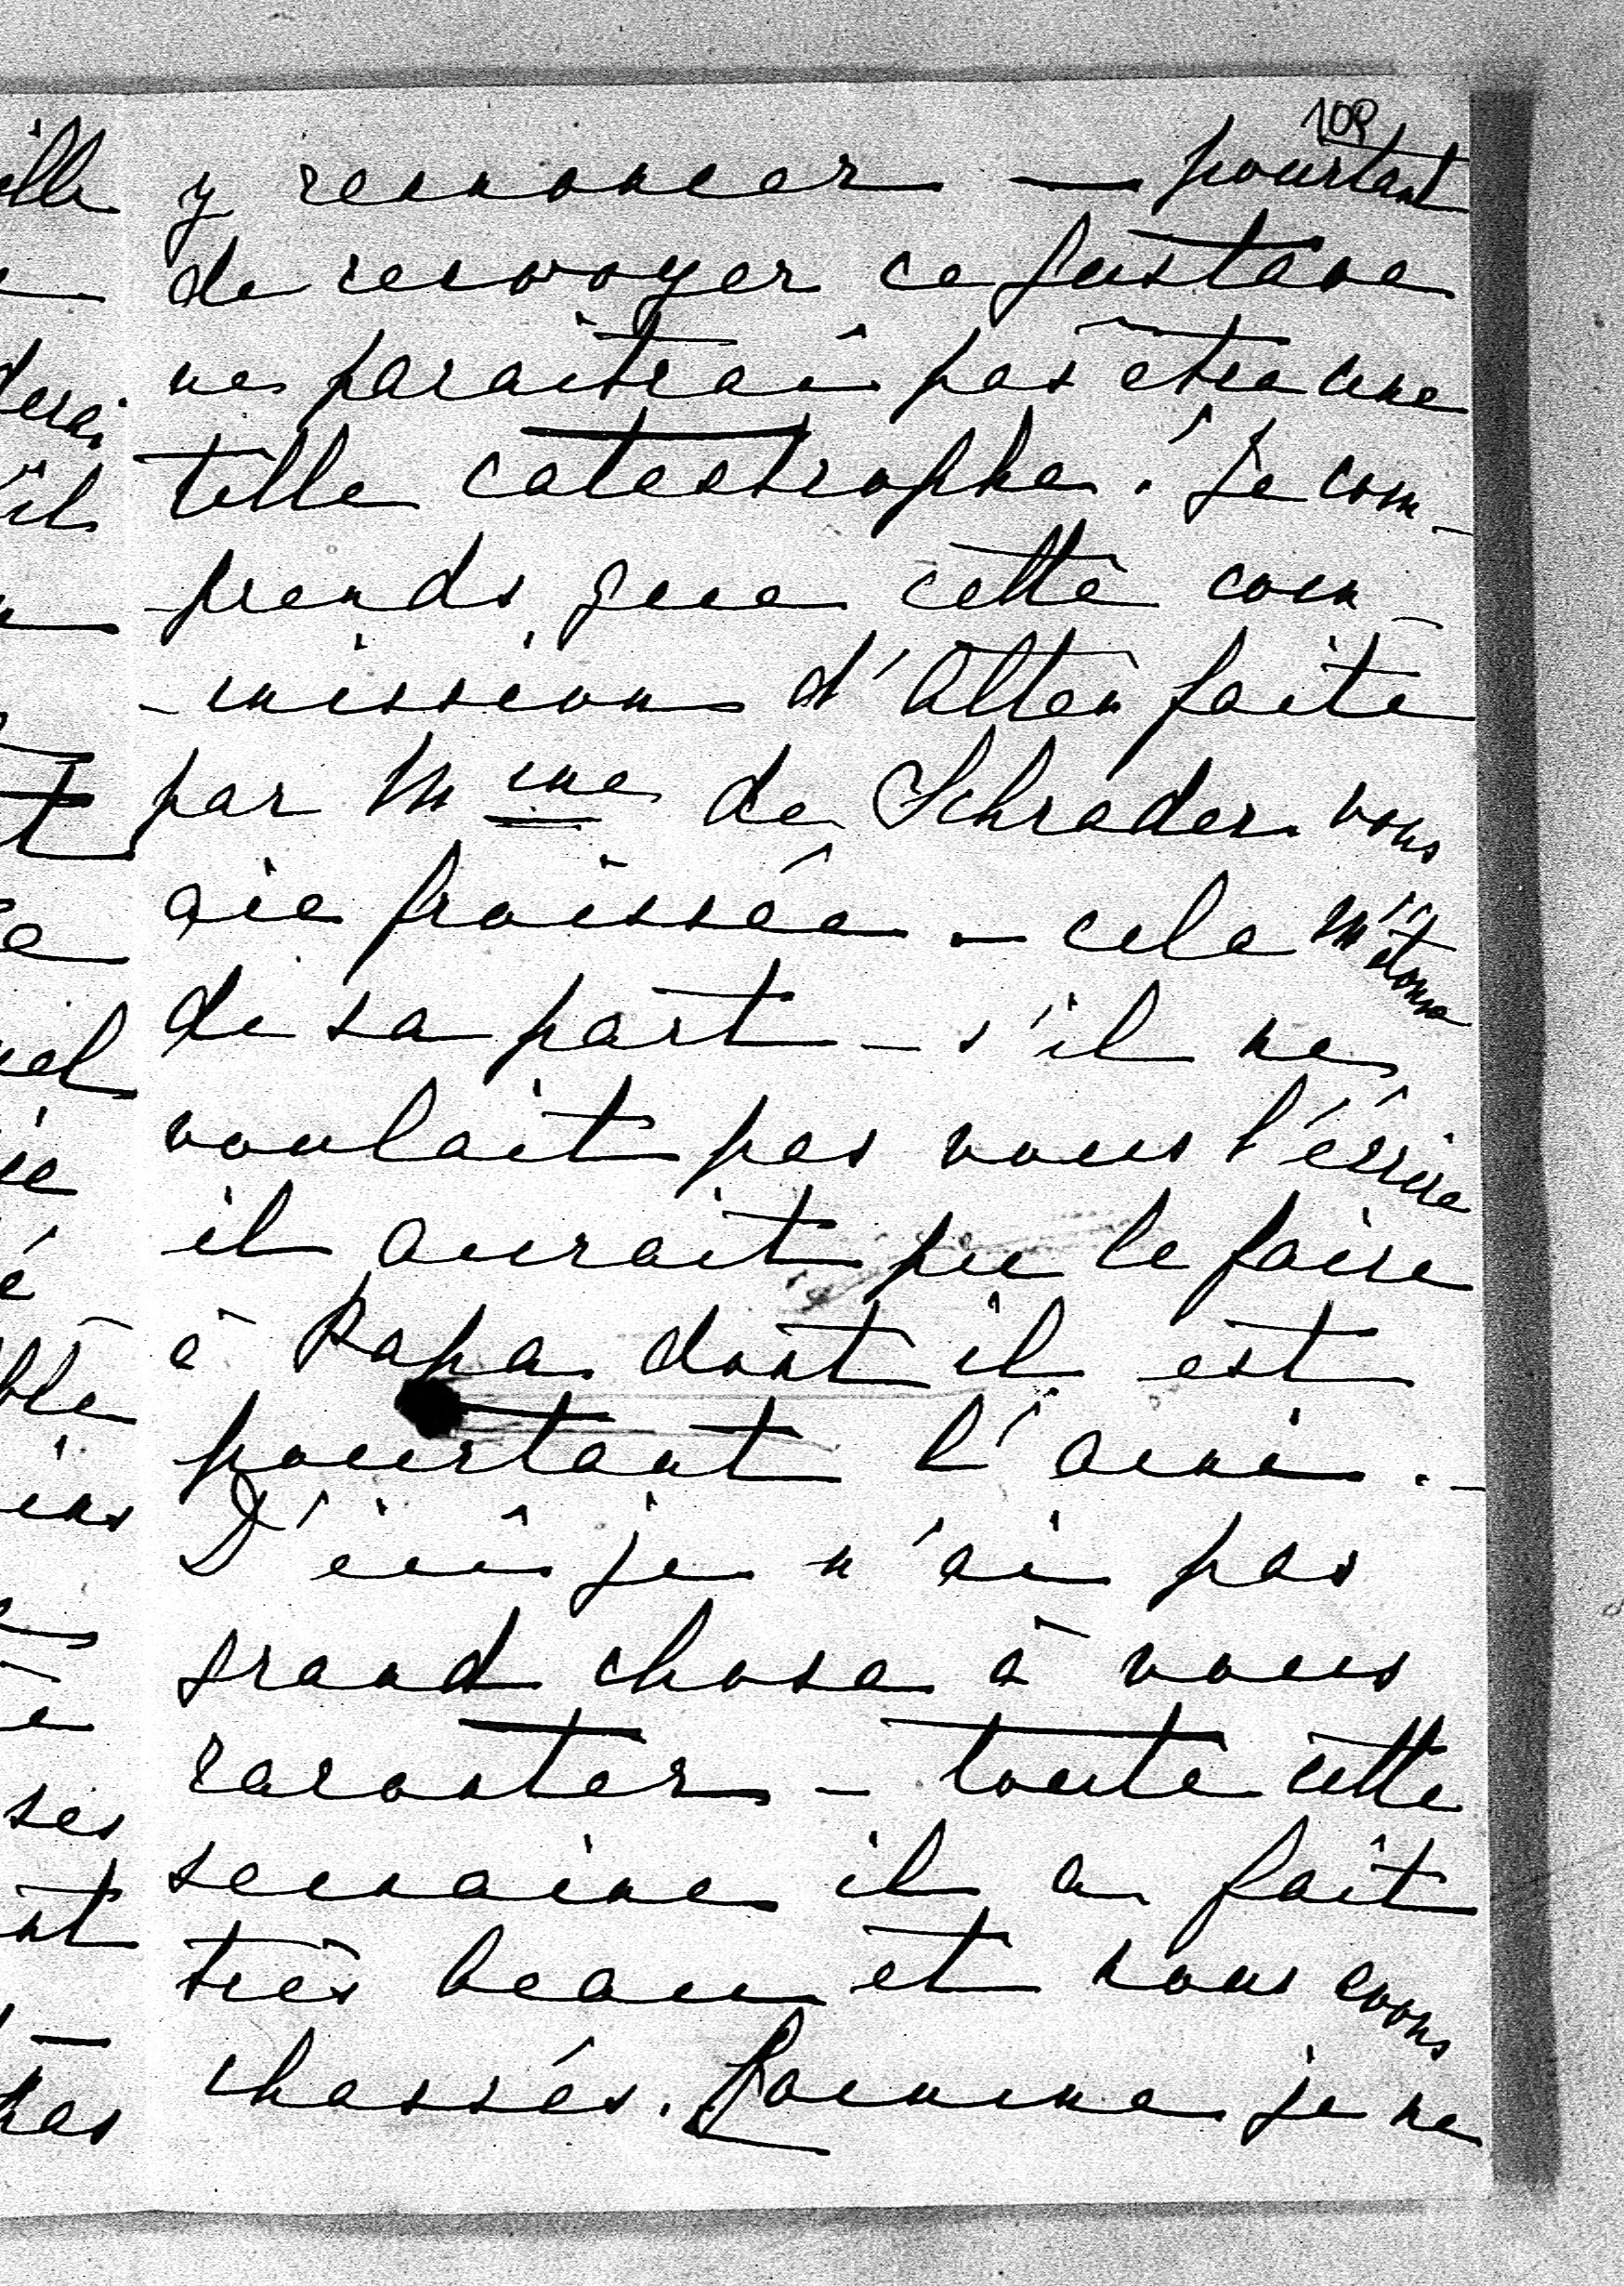 108
y renoncer — pourtant
de renvoyer ce Gustave
me paraitrai pas être une
telle catastrophe. Je com-
-prends que cette com-
-mission d'Alten faite
par Mme de Schrader vous
aie froissée — cela m'étone
de sa part — s'il ne
voulait pas vous l'écrire
il aurait pu le faire
à Papa dont il est
pourtant l'ami. —
D'ici je n'ai pas
grand chose à vous
raconter — toute cette
semaine il a fait
très beau et nous avons
chassés. Comme je ne